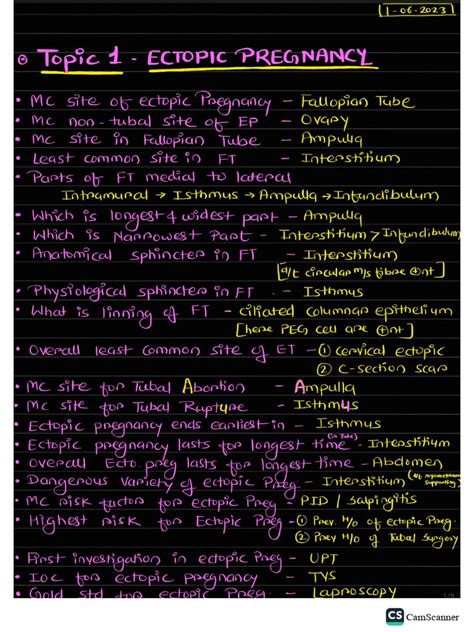 1-06-2023
Topic 1 - ECTOPIC PREGNANCY
• MC site of ectopic Pregnancy - Fallopian Tube
• MC non-tubal site of EP - Ovary
• MC site in Fallopian Tube - Ampulla
• Least common site in FT - Interstitium
• Parts of FT medial to lateral
Intramural → Isthmus → Ampulla → Infundibulum
• Which is longest & widest part - Ampulla
• Which is Narrowest Part - Interstitium > Infundibulum
• Anatomical sphincter in FT - Interstitium
[d/t circular m/s fibre ⊕nt]
• Physiological sphincter in FT - Isthmus
• What is linning of FT - ciliated columnar epithelium
[here PEG cell are ⊕nt]
• Overall least common site of ET - ① cervical ectopic
② C-section scar
• MC site for Tubal Abortion - Ampulla
• MC site for Tubal Rupture - Isthmus
• Ectopic pregnancy ends earliest in - Isthmus
• Ectopic pregnancy lasts for longest time (in Tube) - Interstitium
• Overall Ecto. preg lasts for longest time - Abdomen
• Dangerous variety of ectopic Preg - Interstitium (d/t myometrium Supporting)
• MC risk factor for ectopic Preg - PID / Salpingitis
• Highest risk for Ectopic Preg - ① Prev. H/o of ectopic Preg.
② Prev H/o of Tubal Surgery
• First investigation in ectopic Preg - UPT
• IOC for ectopic pregnancy - TVS
• Gold std for ectopic Preg - Laproscopy
1/8
CS CamScanner